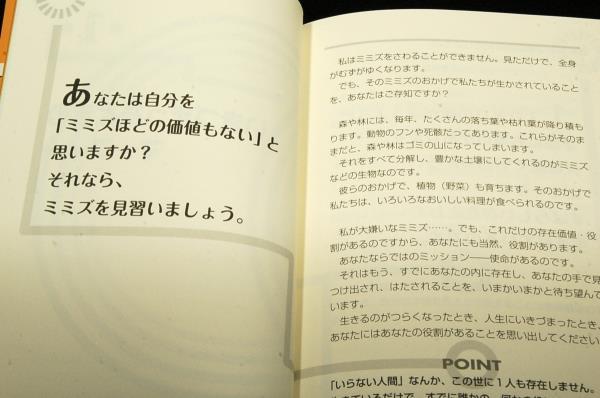 あなたは自分を
「ミミズほどの価値もない」と
思いますか？
それなら、
ミミズを見習いましょう。
私はミミズをさわることができません。見ただけで、全身
がむずがゆくなります。
でも、そのミミズのおかげで私たちが生かされていること
を、あなたはご存知ですか？
森や林には、毎年、たくさんの落ち葉や枯れ葉が降り積も
ります。動物のフンや死骸だってあります。これらがそのま
まだと、森や林はゴミの山になってしまいます。
それをすべて分解し、豊かな土壌にしてくれるのがミミズ
などの生物なのです。
彼らのおかげで、植物（野菜）も育ちます。そのおかげで
私たちは、いろいろなおいしい料理が食べられるのです。
私が大嫌いなミミズ……。でも、これだけの存在価値・役
割があるのですから、あなたにも当然、役割があります。
あなたならではのミッション――使命があるのです。
それはもう、すでにあなたの内に存在し、あなたの手で見
つけ出され、はたされることを、いまかいまかと待ち望んで
います。
生きるのがつらくなったとき、人生にいきづまったとき、
あなたにはあなたの役割があることを思い出してください
POINT
「いらない人間」なんか、この世に1人も存在しません。